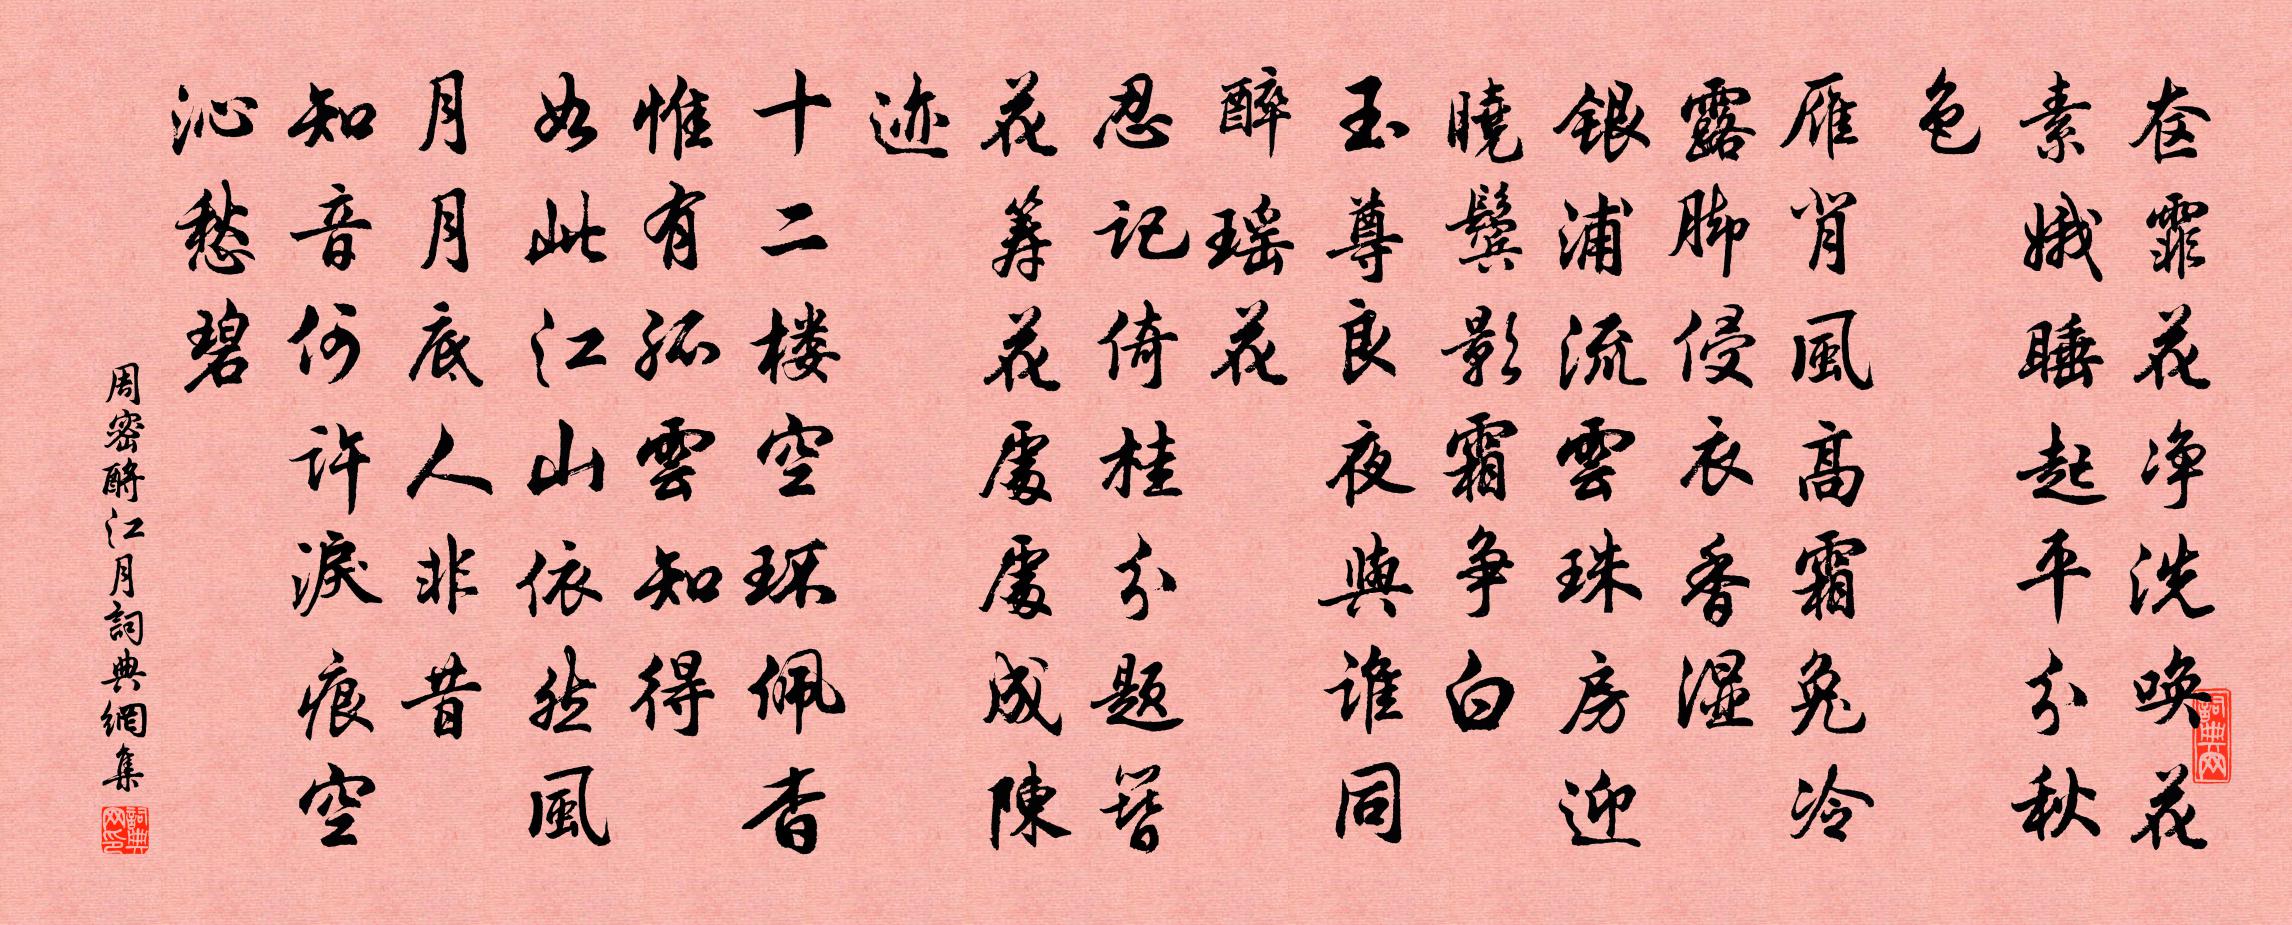 奁霏花净洗唤花
素娥睡起平分秋
色
雁肖風高霜兔冷
露脚侵衣香湿
银浦流雲珠房迎
曉鬓影霜争白
玉尊良夜與谁同
醉瑶花
忍记倚桂分题簪
花筹花處處成陳
迹
十二楼空环佩杳
惟有孤雲知得
如此江山依然風
月月底人非昔
知音何许淚痕空
沁愁碧
周密酹江月詞典網集
詞典网
詞典网印